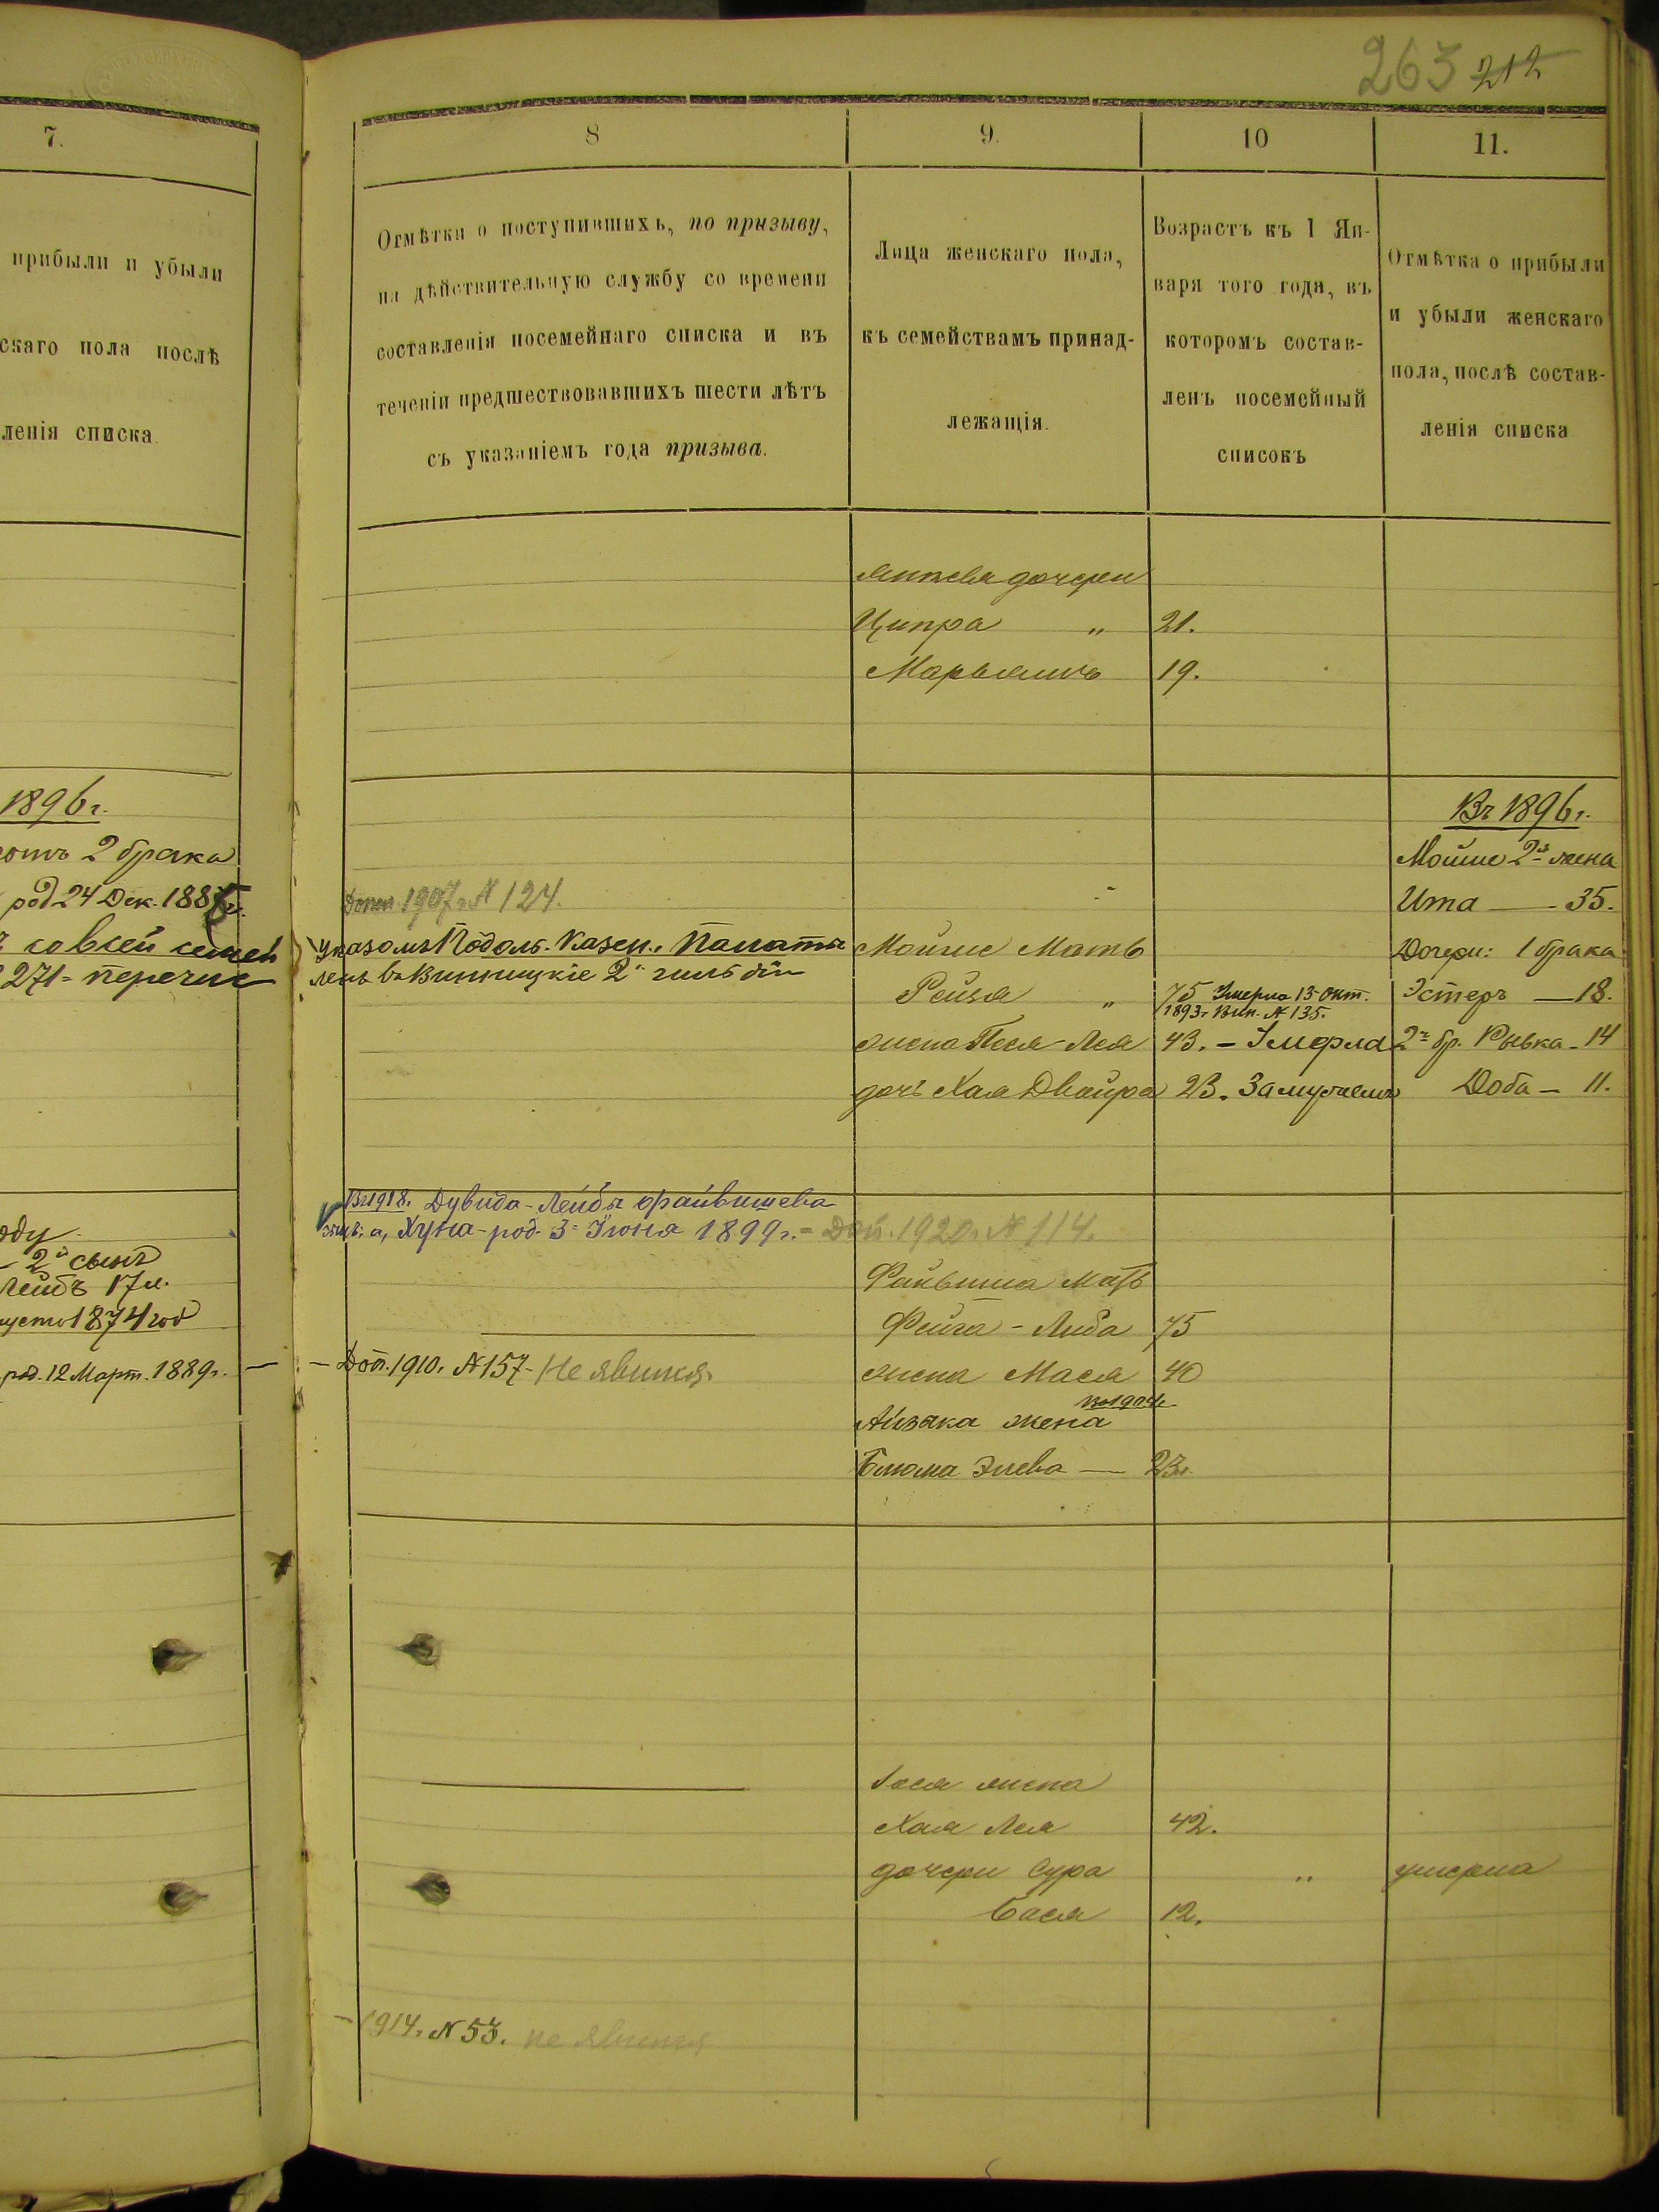 263 212
7.
прибыли и убыли
скаго пола послѣ
ленія списка.
1896 г.
2 брака
род 24 Дек. 188
со всей семей
271 - перечис
2й сынъ
Лейбъ 17 л.
1874 год
род. 12 Март. 1889 г. —
8
Отмѣтки о поступившихъ, по призыву,
на дѣйствительную службу со времени
составленія посемейнаго списка и въ
теченіи предшествовавшихъ шести лѣтъ
съ указаніемъ года призыва.
Доп. 1907 г. № 124.
Указомъ Подольс. Казен. Палаты
ленъ въ Винницкіе 2й гильдіи
Въ 1918 г. Дувида-Лейбы Файвишева
сынъ: а, Хуна - род. 3 Іюня 1899 г. - Доп. 1920 г. № 114.
— Доп. 1910 г. № 157 - Не явился.
1914 г. № 53. не явился
9.
Лица женскаго пола,
къ семействамъ принад-
лежащія.
дочери
Ципра "
Марьямъ
Мойше Мать
Рейзя "
жена Песя-Лея
дочь Хая Двойра
Файвиша Мать
Фейга - Либа
жена Мася
въ 1904 г.
Айзака жена
Блюма Элева —
жена
Хая Лея
дочери Сура
Бася
10
Возрастъ къ 1 Ян-
варя того года, въ
которомъ состав-
ленъ посемейный
списокъ
21.
19.
75 Умерла 13 Окт.
1893 г. Вин. № 135.
43. - Умерла
23. Замужемъ
75
40
23 л.
42.
"
12.
11.
Отмѣтка о прибыли
и убыли женскаго
пола, послѣ состав-
ленія списка
Въ 1896 г.
Мойше 2я жена
Ита — 35.
Дочери: 1 брака
Эстеръ — 18.
2го бр. Рывка - 14
Доба - 11.
умерла